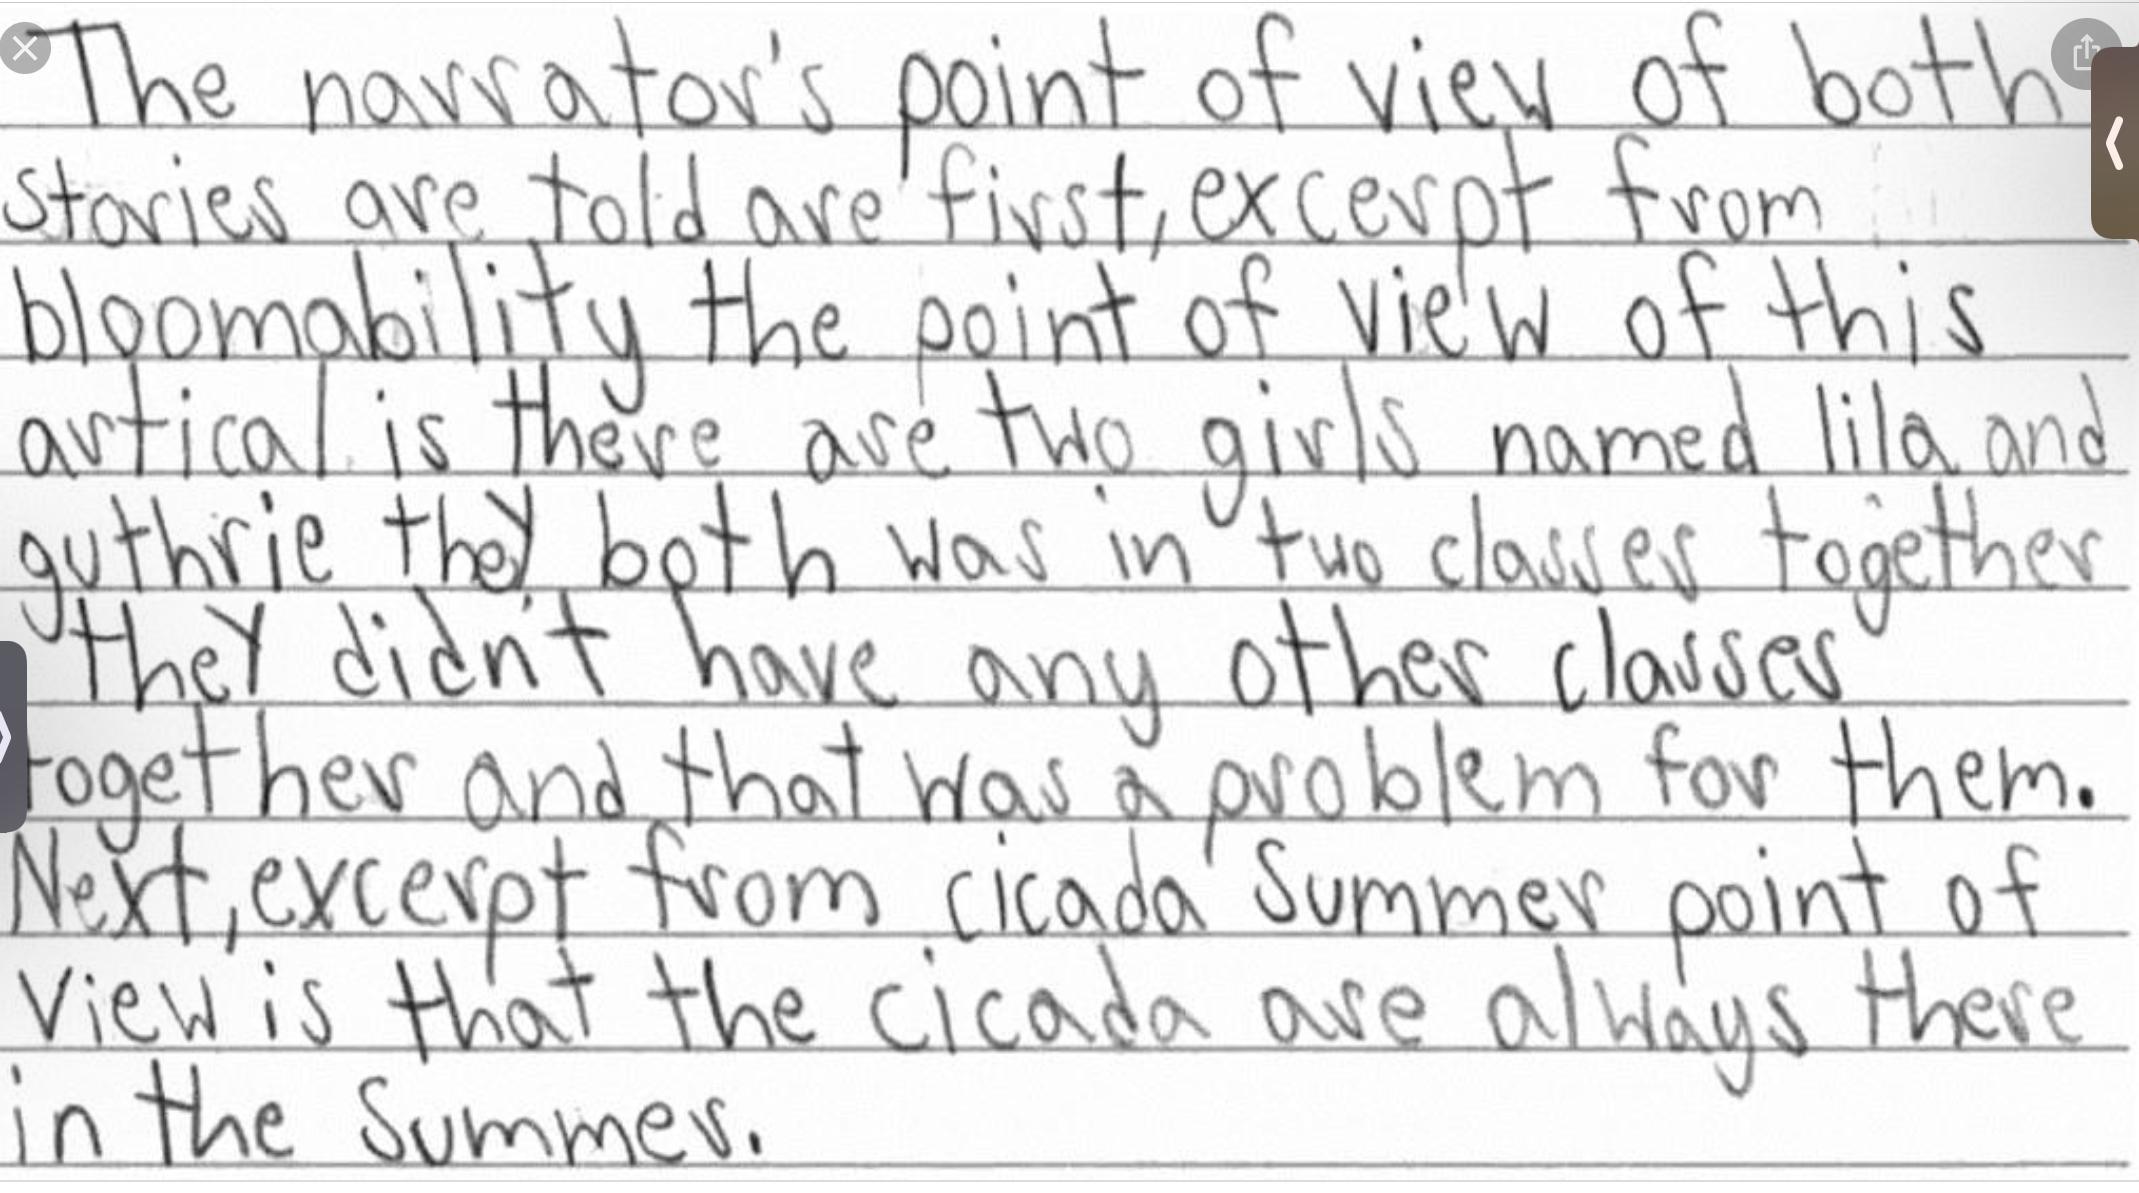 The narrator's point of view of both
stories are told are first, excerpt from
bloomability the point of view of this
artical is there are two girls named lila and
guthrie they both was in two classes together
they didn't have any other classes
together and that was a problem for them.
Next, excerpt from cicada Summer point of
view is that the cicada are always there
in the Summer.